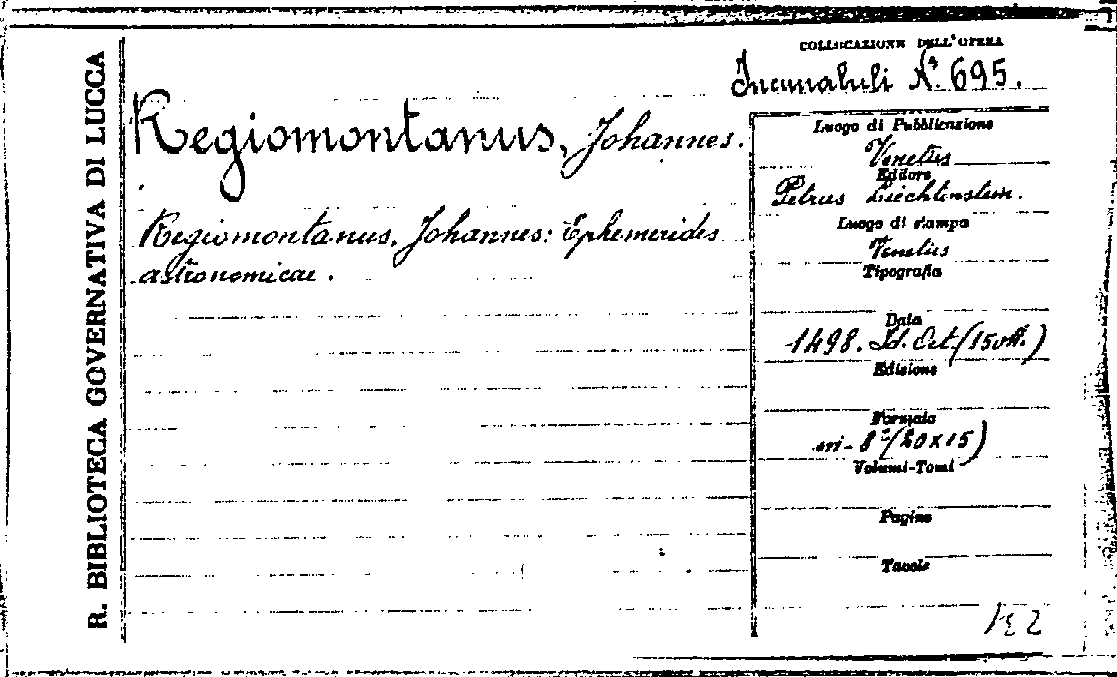 R. BIBLIOTECA GOVERNATIVA DI LUCCA
COLLOCAZIONE DELL'OPERA
Incunabuli N.º 695.
Regiomontanus, Johannes.
Regiomontanus, Johannes: Ephemerides
astronomicae.
Luogo di Pubblicazione
Venetiis
Editore
Petrus Liechtenstein.
Luogo di stampa
Venetiis
Tipografia
Data
1498. Id. Oct. (15 )
Edizione
Formato
in-8º (20x15)
Volumi-Tomi
Pagine
Tavole